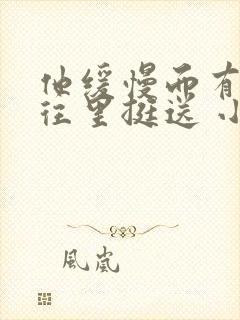 他缓慢而有
往里挺送 小
風嵐